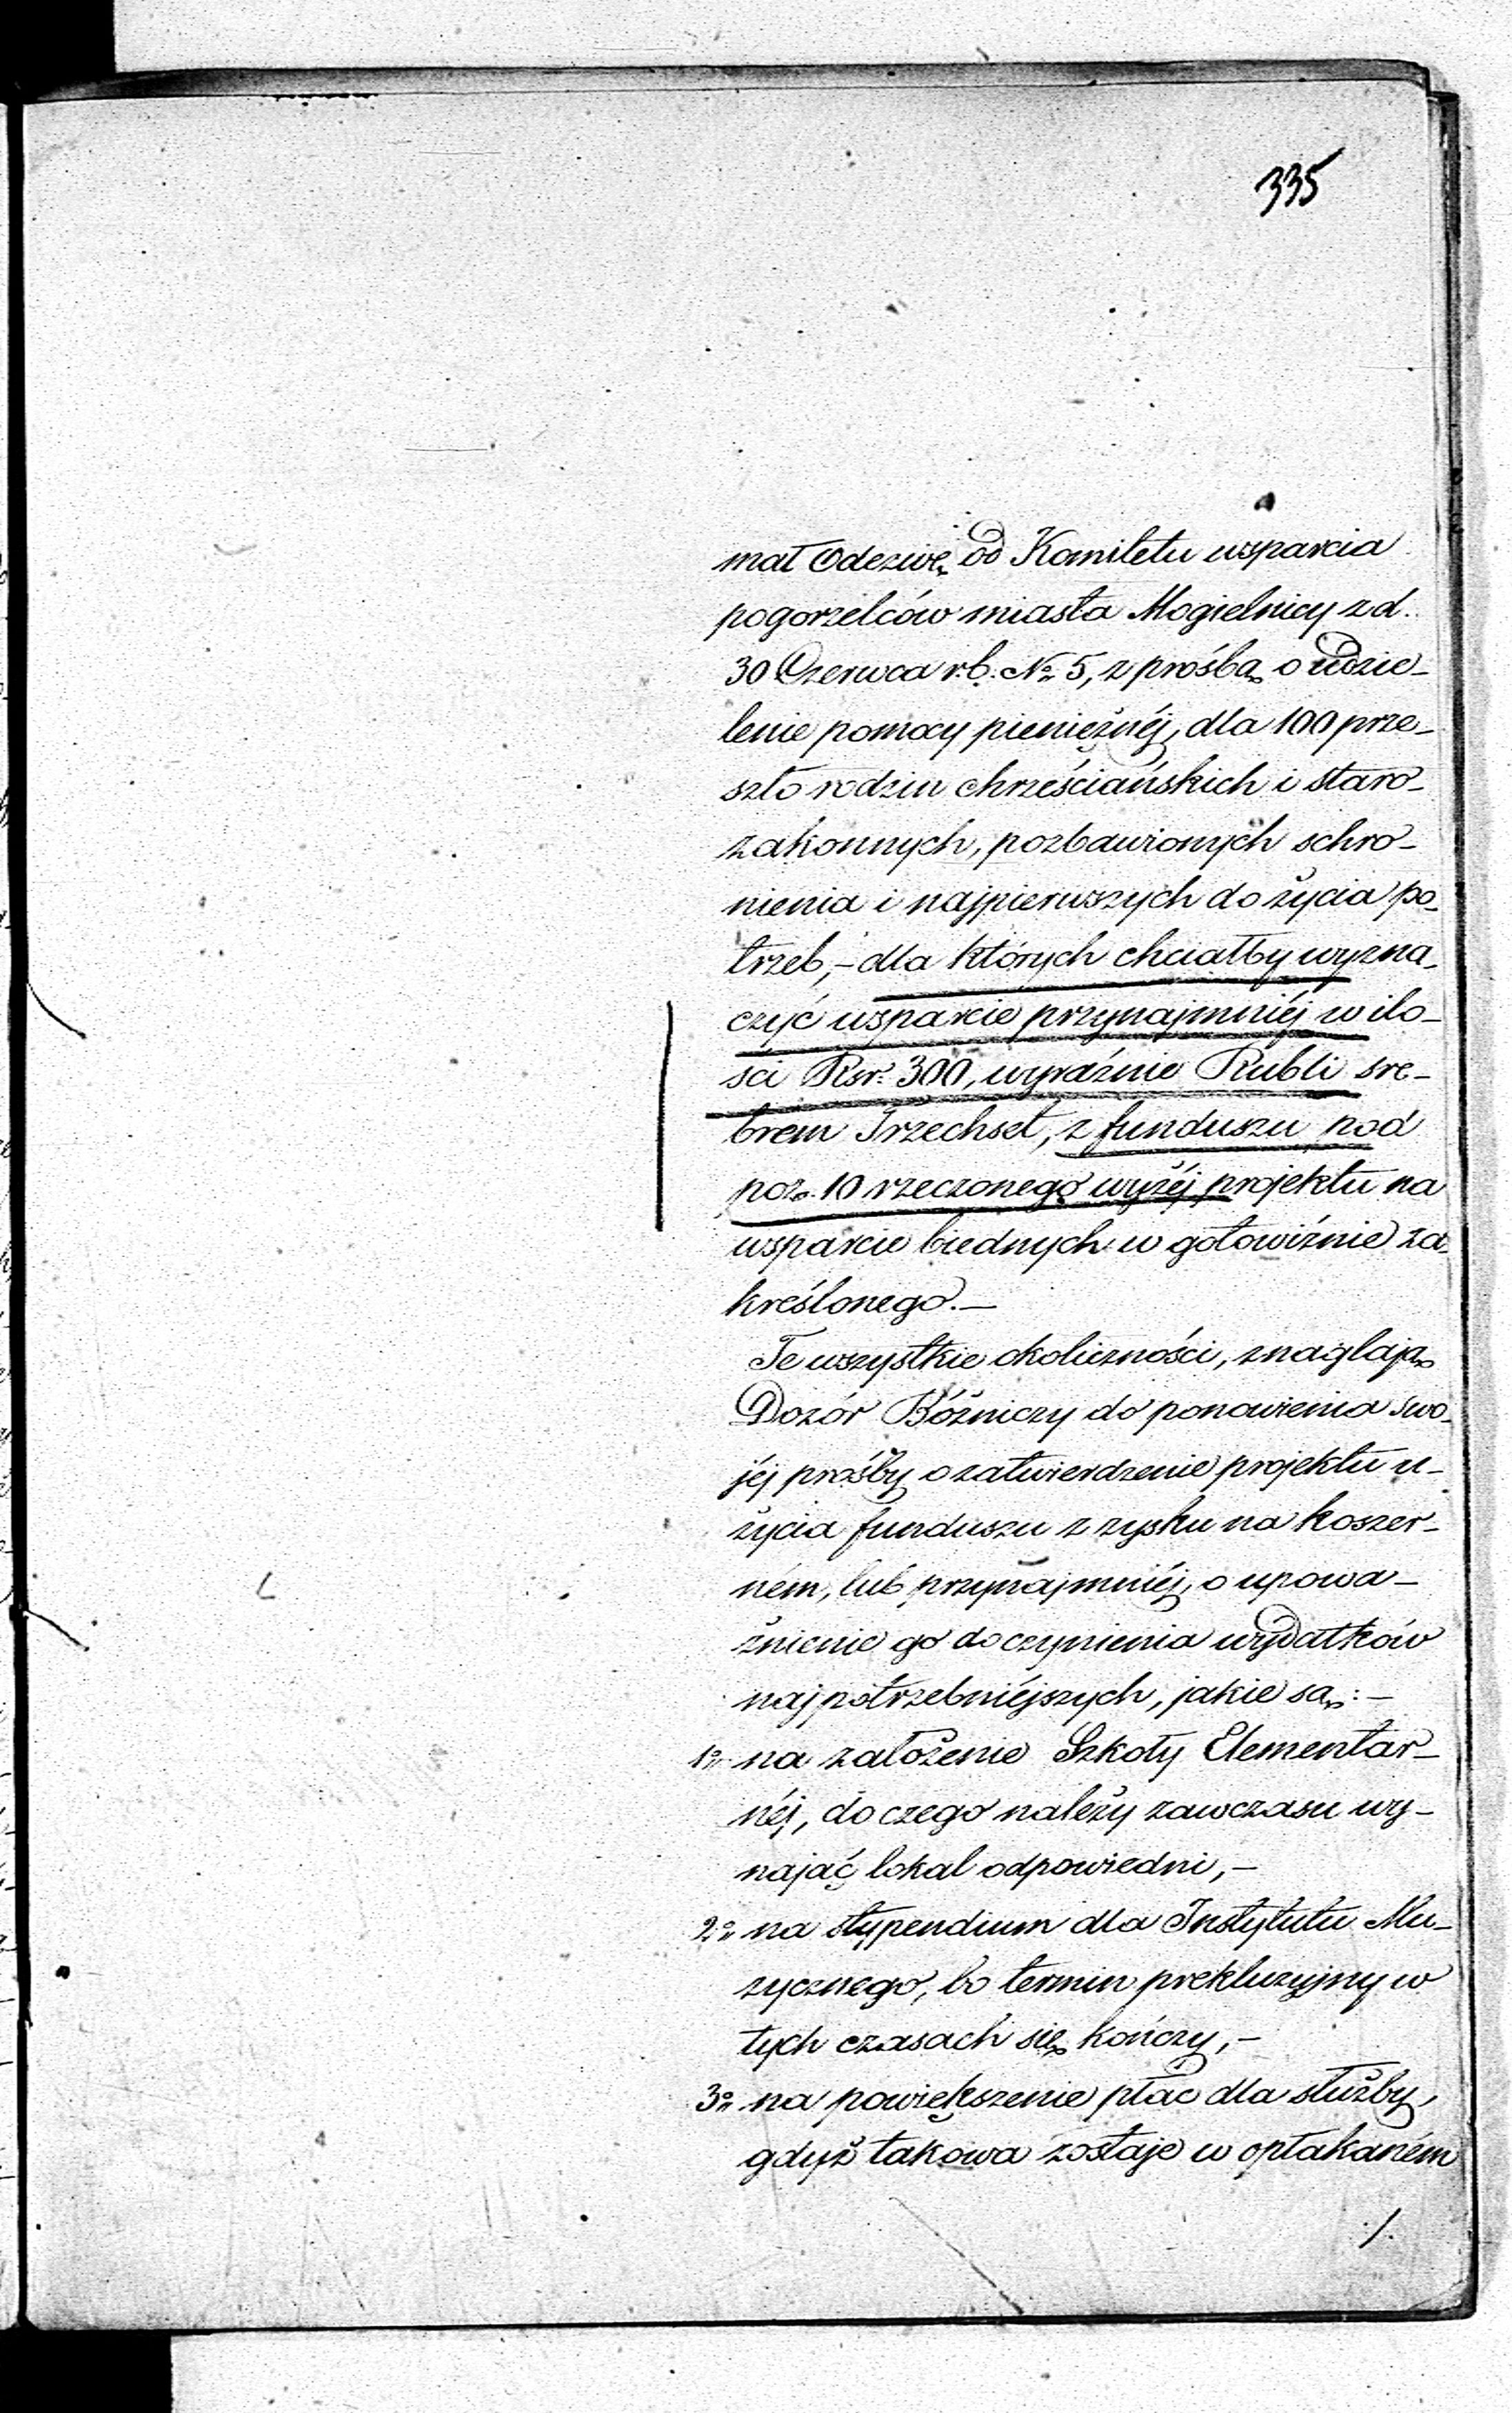 335
mał Odezwę od Komitetu wsparcia
pogorzelców miasta Mogielnicy z d.
30 Czerwca r. b. № 5, z prośbą o udzie-
lenie pomocy pieniężnéj, dla 100 prze-
szło rodzin chrześciańskich i staro-
zakonnych, pozbawionych schro-
nienia i najpierwszych do życia po-
trzeb, - dla których chciałby wyzna-
czyć wsparcie przynajmniéj w ilo-
ści Rsr. 300, wyraźnie Rubli sre-
brem Trzechset, z funduszu pod
poz. 10 rzeczonego wyżéj projektu na
wsparcie biednych w gotowiźnie za-
kreślonego. -
Te wszystkie okoliczności, znaglają
Dozór Bóżniczy do ponowienia swo-
jéj prośby o zatwierdzenie projektu u-
życia funduszu z zysku na koszer-
ném, lub przynajmniéj, o upowa-
żnienie go do czynienia wydatków
najpotrzebniéjszych, jakie są: -
1o na założenie Szkoły Elementar-
néj, do czego należy zawczasu wy-
nająć lokal odpowiedni, -
2o na stypendium dla Instytutu Mu-
zycznego, bo termin prekluzyjny w
tych czasach się kończy, -
3o na powiększenie płac dla służby,
gdyż takowa zostaje w opłakaném
./.